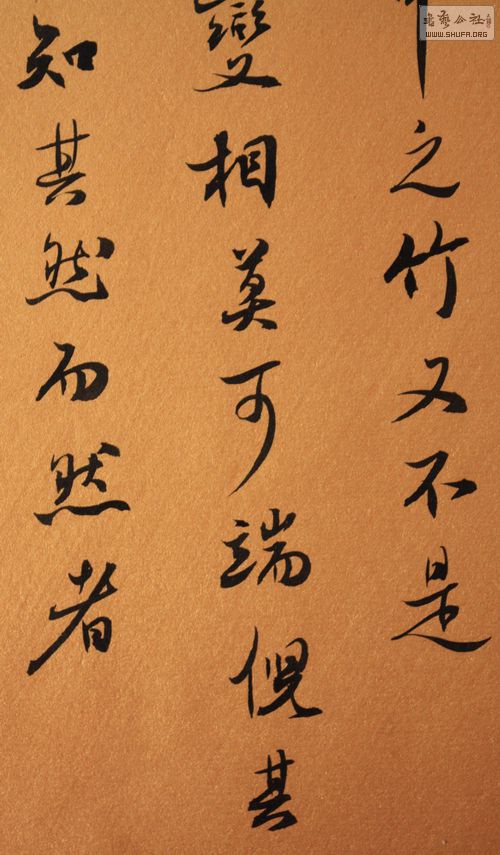 之竹又不是
變相莫可端倪其
知其然而然者
書藝公社
WWW.SHUFA.ORG